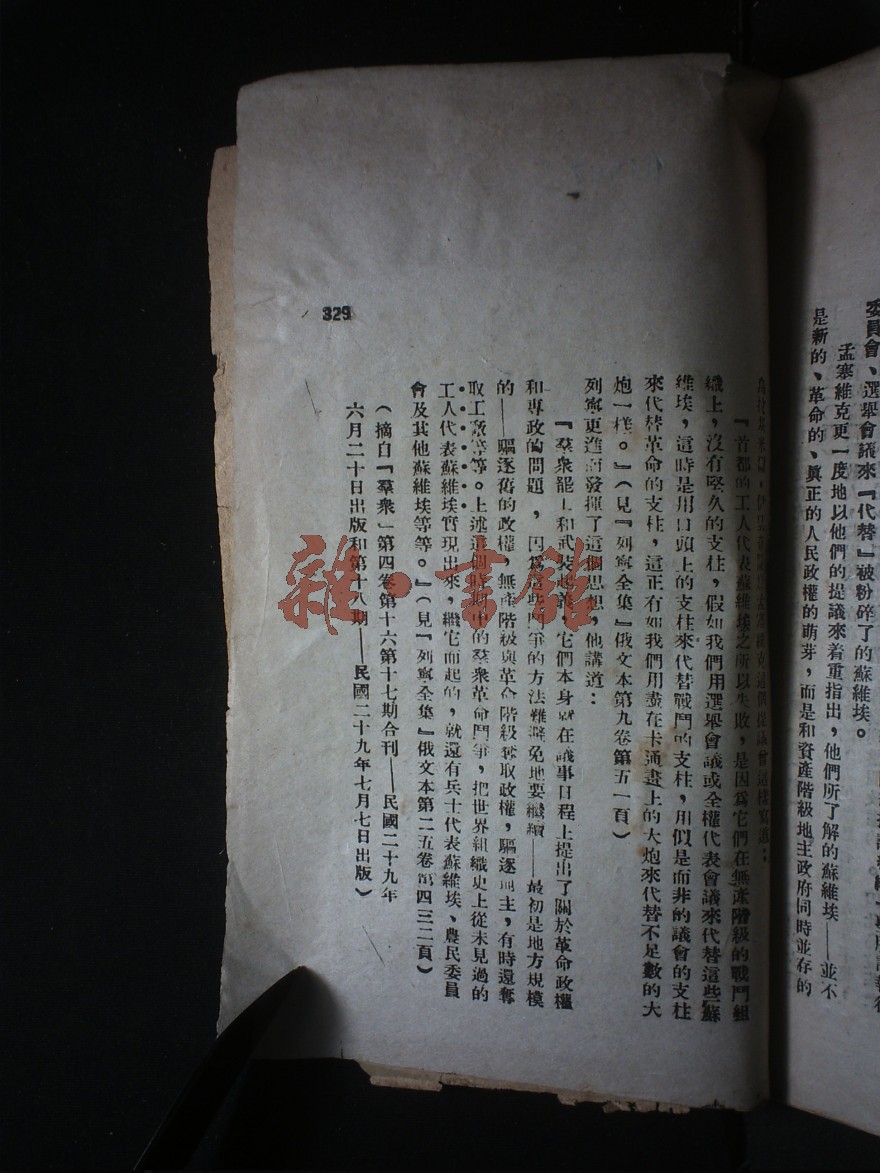 委員會、選舉會議來『代替』被粉碎了的蘇維埃。
孟塞維克更一度地以他們的提議來着重指出，他們所了解的蘇維埃——並不
是新的、革命的、眞正的人民政權的萌芽，而是和資產階級地主政府同時並存的
『首都的工人代表蘇維埃之所以失敗，是因爲它們在無產階級的戰鬥組
織上，沒有堅久的支柱，假如我們用選舉會議或全權代表會議來代替這些蘇
維埃，這時是用口頭上的支柱來代替戰鬥的支柱，用似是而非的議會的支柱
來代替革命的支柱，這正有如我們用畫在卡通畫上的大炮來代替不足數的大
炮一樣。』（見『列寧全集』俄文本第九卷第五一頁）
列寧更進而發揮了這個思想，他講道：
『羣衆罷工和武裝起義，它們本身就在議事日程上提出了關於革命政權
和專政的問題，因爲這些鬥爭的方法難避免地要繼續——最初是地方規模
的——驅逐舊的政權，無產階級與革命階級奪取政權，驅逐地主，有時還奪
取工廠等等。上述這個時期中的羣衆革命鬥爭，把世界組織史上從未見過的
工人代表蘇維埃實現出來，繼它而起的，就還有兵士代表蘇維埃、農民委員
會及其他蘇維埃等等。』（見『列寧全集』俄文本第二五卷第四三二頁）
（摘自『羣衆』第四卷第十六第十七期合刊——民國二十九年
六月二十日出版和第十八期——民國二十九年七月七日出版）
329
雜·書館